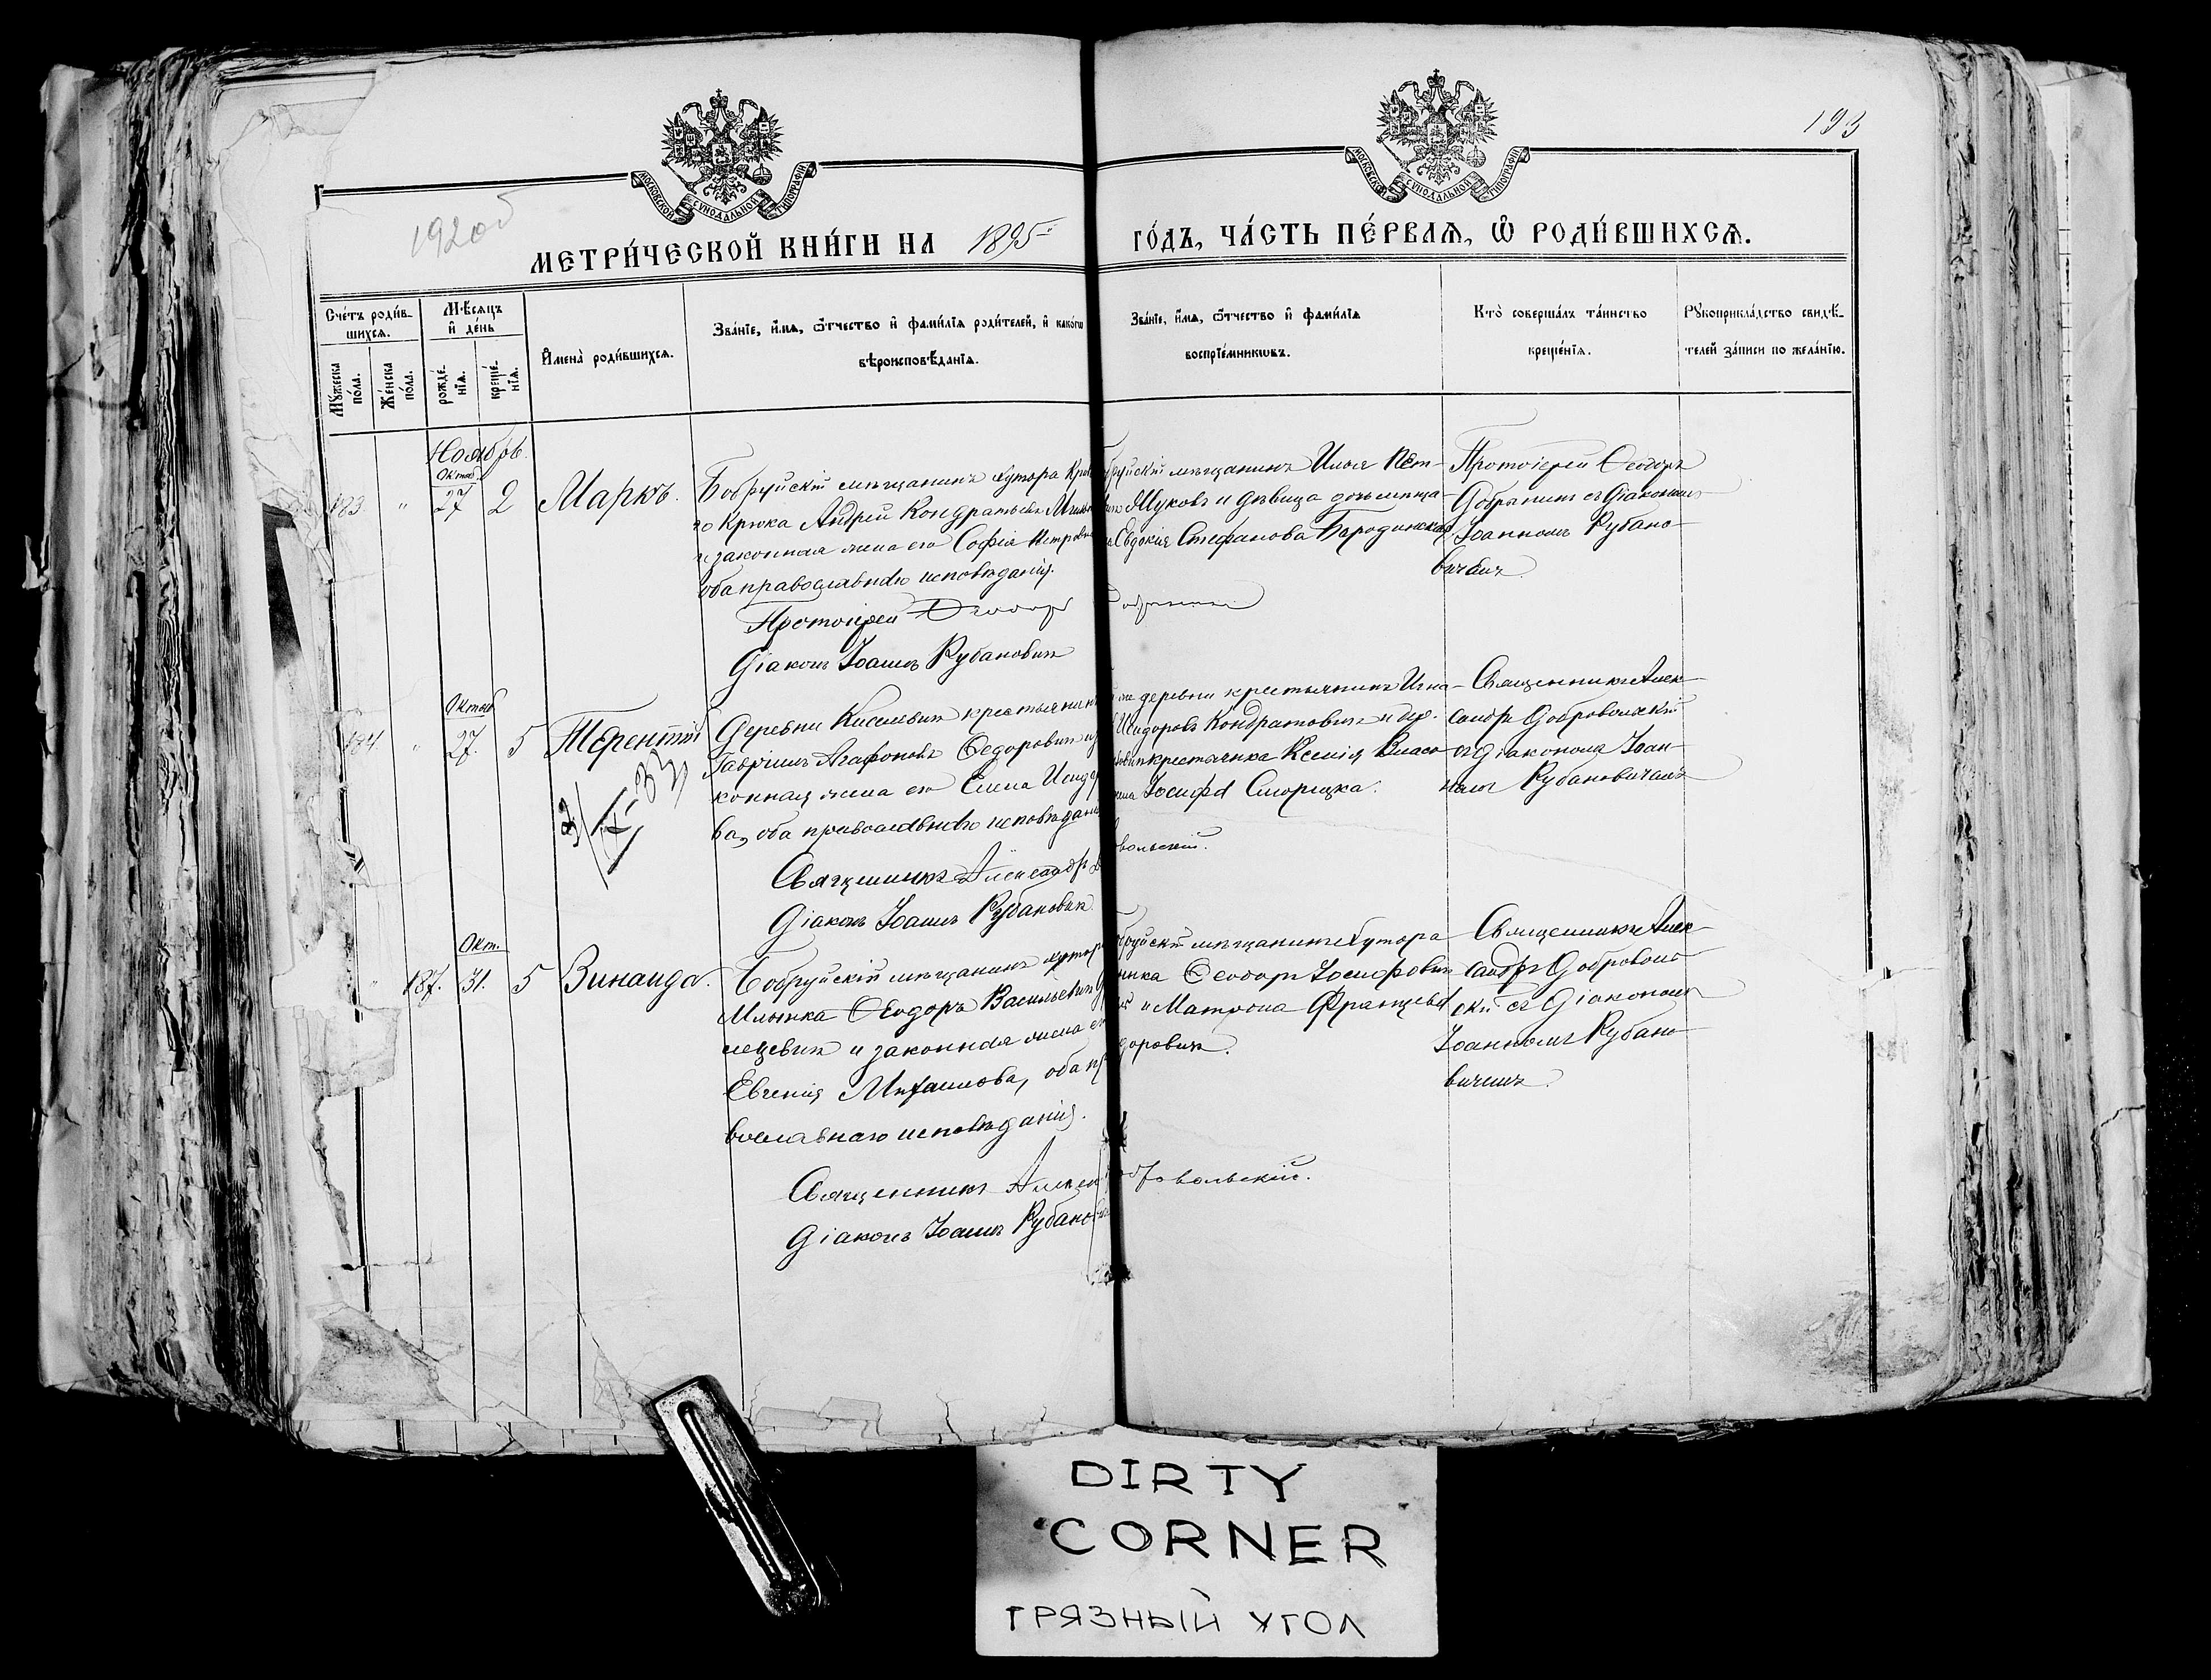 193
192об
МОСКОВСКОЙ СУНОДАЛЬНОЙ ТИПОГРАФІИ
МОСКОВСКОЙ СУНОДАЛЬНОЙ ТИПОГРАФІИ
МЕТРИ́ЧЕСКОЙ КНИ́ГИ НА 1895
ГО́ДЪ, ЧА́СТЬ ПЕ́РВАѦ, Ѿ РОДИ́ВШИХСѦ.
Сче́тъ роди́в-
шихсѧ.
Мꙋ́жеска по́ла.
Же́нска по́ла.
Мѣ́сѧцъ
и҆ де́нь
рожде́-
нїѧ.
креще́-
нїѧ.
И҆мена̀ роди́вшихсѧ.
Зва́нїе, и҆́мѧ, ѻ҆́тчество и҆ фами́лїѧ роди́телей, и҆ како́гѡ
вѣроисповѣ́данїѧ.
Зва́нїе, и҆́мѧ, ѻ҆́тчество и҆ фами́лїѧ
воспрїе́мникѡвъ.
Кто̀ соверша́лъ та́инство
креще́нїѧ.
Рꙋкоприкла́дство свидѣ́-
телей за́писи по жела́нїю.
Ноябрь.
Октяб.
183. " 27 2 Маркъ.
Бобруйскій мѣщанинъ хутора
го Крюка Андрей Кондратьевъ
и законная жена его Софія Петрова
оба православнаго исповѣданія.
Протоіерей Ѳеодоръ
Діаконъ Іоаннъ Рубановичъ
мѣщанинъ Илья Пет-
Жуковъ и дѣвица дочь мѣща-
Евдокія Стефанова Бародинская
Протоіерей Ѳеодоръ
Добрынинъ съ діакономъ
Іоанномъ Рубано-
вичемъ.
Октяб
184. " 27. 5 Терентій
Деревни Киселевичъ крестьянинъ
Гавріилъ Агафоновъ Ѳедоровичъ
конная жена его Елена
ва, оба православнаго исповѣданія
Священникъ Александръ
Діаконъ Іоаннъ Рубановичъ.
же деревни крестьянинъ Игна-
Исидоровъ Кондратовичъ и дер.
крестьянка Ксенія Власо-
Іосифа Сморщка.
вольскій.
Священникъ Алек-
сандръ Добровольскій
съ діакономъ Іоан-
номъ Рубановичемъ
Окт.
" 187. 31. 5 Зинаида.
Бобруйскій мѣщанинъ хутора
Млынка Ѳеодоръ Васильевичъ
и законная жена его
Евгенія Михайлова, оба пра
вославнаго исповѣданія.
Священникъ Александръ
Діаконъ Іоаннъ Рубановичъ
мѣщанинъ хутора
Ѳеодоръ Іосифовичъ
и Матрона Францева
доровичъ.
добровольскій.
Священникъ Алек-
сандръ Доброволь-
скій съ діакономъ
Іоанномъ Рубано-
вичемъ.
DIRTY
CORNER
ГРЯЗНЫЙ УГОЛ